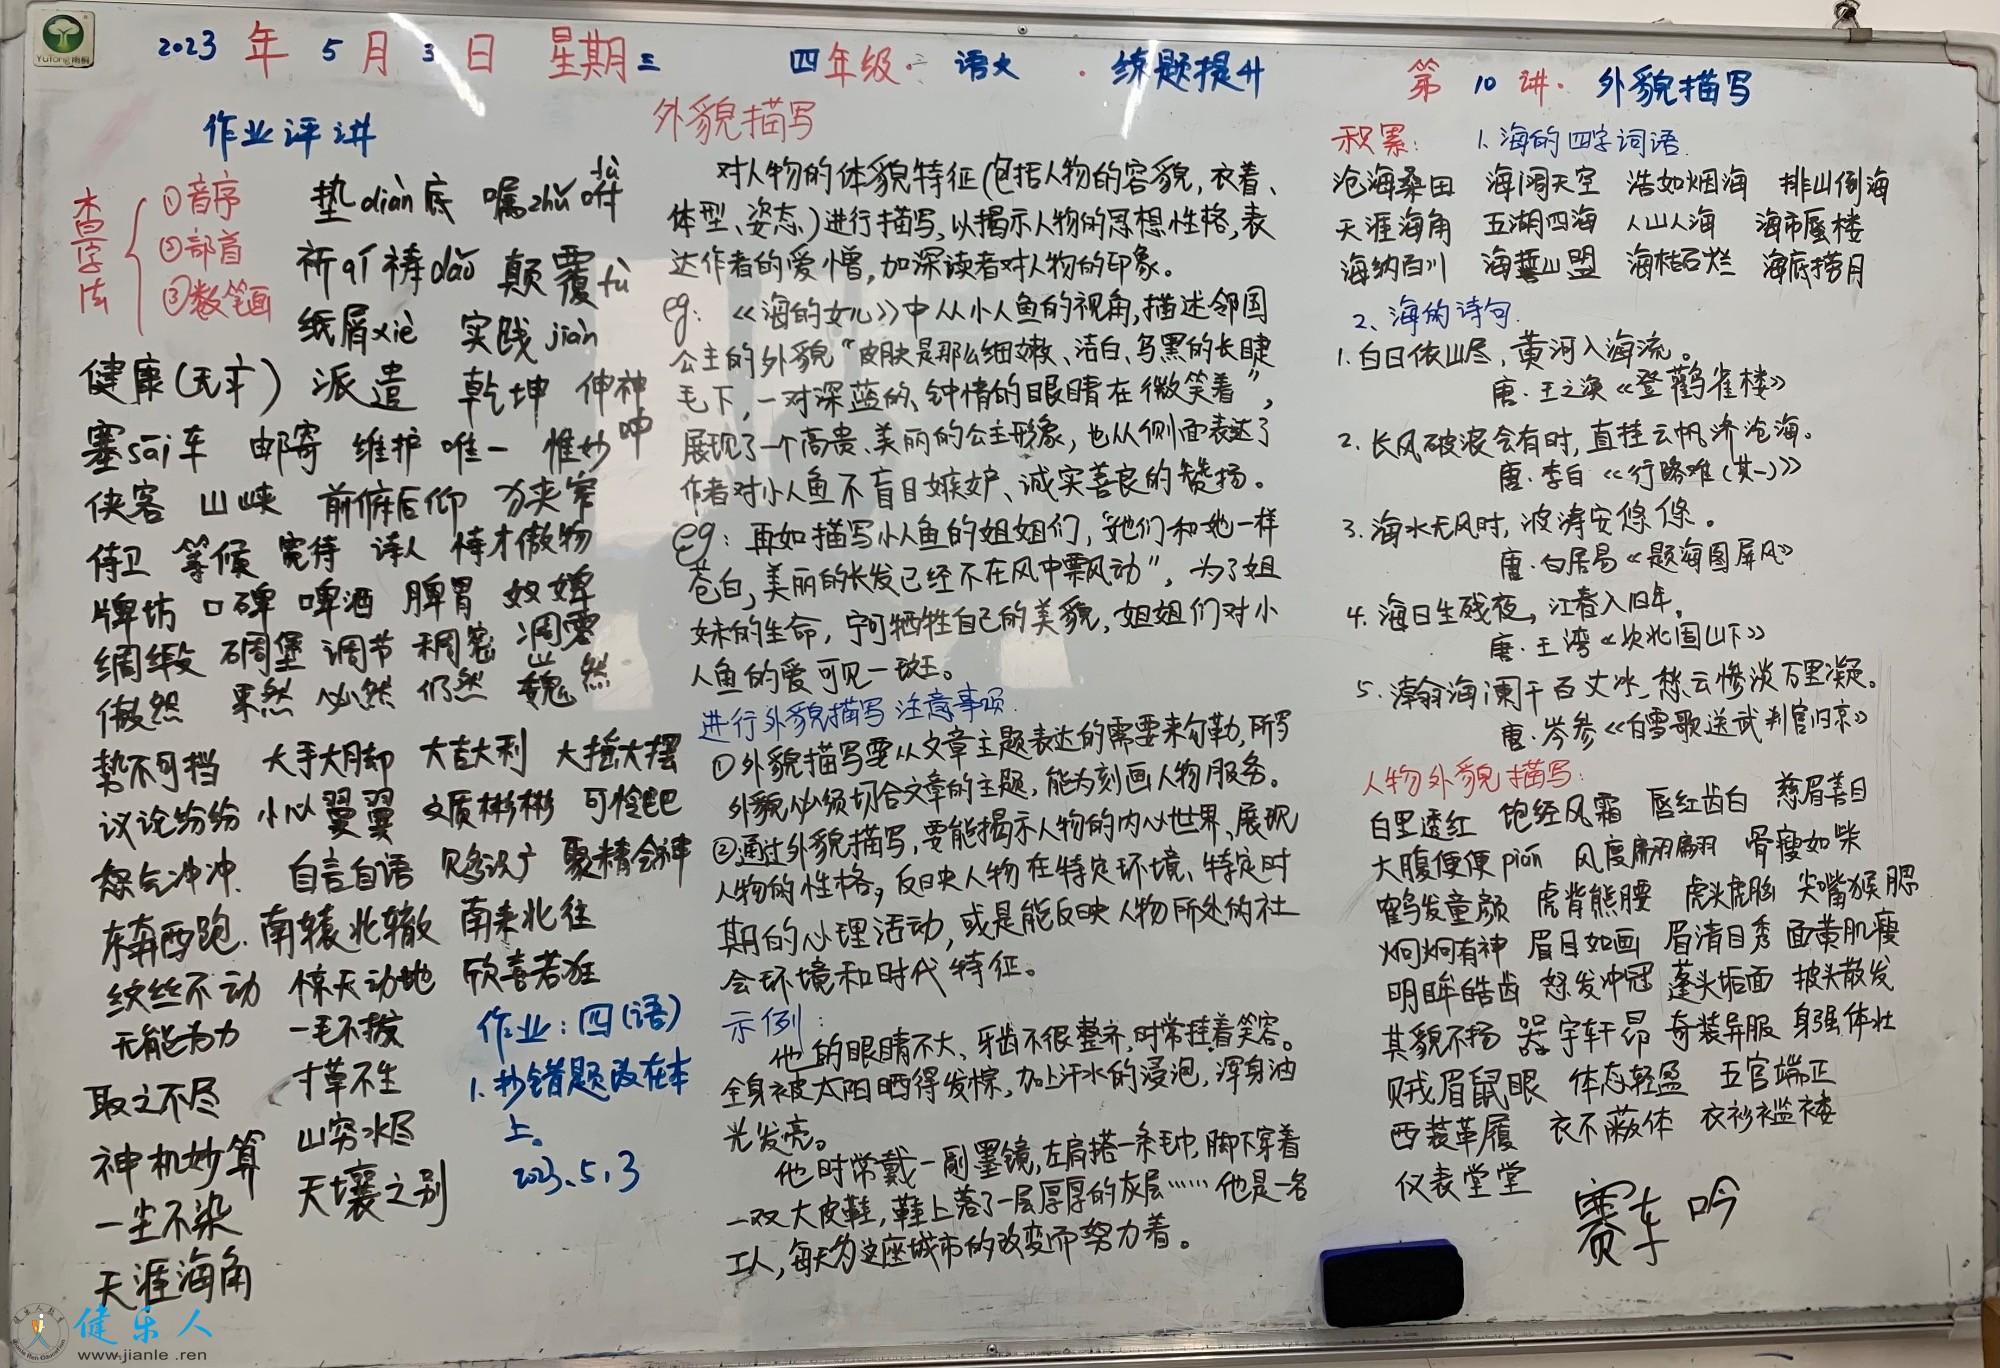 2023年5月3日 星期三 四年级·语文·练题提升 第10讲·外貌描写
作业评讲
查字法
①音序
②部首
③数笔画
垫diàn底 嘱zhǔ咐fù
祈qí祷dǎo 颠覆fù
纸屑xiè 实践jiàn
健康(无字) 派遣 乾坤 伸神呻
塞sāi车 邮寄 维护 唯一 惟妙
侠客 山峡 前俯后仰 夹窄
侍卫 等候 宽待 诗人 恃才傲物
牌坊 口碑 啤酒 脾胃 奴婢
绸缎 碉堡 调节 稠密 凋零
傲然 果然 必然 仍然 巍然
势不可挡 大手大脚 大吉大利 大摇大摆
议论纷纷 小心翼翼 文质彬彬 可怜巴巴
怒气冲冲 自言自语 见多识广 聚精会神
东奔西跑 南辕北辙 南来北往
纹丝不动 惊天动地 欣喜若狂
无能为力 一毛不拔
取之不尽 寸草不生
神机妙算 山穷水尽
一尘不染 天壤之别
天涯海角
作业:四(语)
1.抄错题改在本
上。
2023.5.3
外貌描写
对人物的体貌特征(包括人物的容貌,衣着、
体型、姿态)进行描写,以揭示人物的思想性格,表
达作者的爱憎,加深读者对人物的印象。
eg:《海的女儿》中从小人鱼的视角,描述邻国
公主的外貌“皮肤是那么细嫩、洁白、乌黑的长睫
毛下,一对深蓝的、钟情的眼睛在微笑着”,
展现了一个高贵、美丽的公主形象,也从侧面表达了
作者对小人鱼不盲目嫉妒、诚实善良的赞扬。
eg:再如描写小人鱼的姐姐们,“她们和她一样
苍白,美丽的长发已经不在风中飘动”,为了姐
妹的生命,宁可牺牲自己的美貌,姐姐们对小
人鱼的爱可见一斑。
进行外貌描写注意事项.
①外貌描写要从文章主题表达的需要来勾勒,所写
外貌必须切合文章的主题,能为刻画人物服务。
②通过外貌描写,要能揭示人物的内心世界、展现
人物的性格,反映人物在特定环境、特定时
期的心理活动,或是能反映人物所处的社
会环境和时代特征。
示例:
他的眼睛不大、牙齿不很整齐,时常挂着笑容。
全身被太阳晒得发棕,加上汗水的浸泡,浑身油
光发亮。
他时常戴一副墨镜,左肩搭一条毛巾,脚下穿着
一双大皮鞋,鞋上落了一层厚厚的灰层……他是一名
工人,每天为这座城市的改变而努力着。
积累: 1.海的四字词语.
沧海桑田 海阔天空 浩如烟海 排山倒海
天涯海角 五湖四海 人山人海 海市蜃楼
海纳百川 海誓山盟 海枯石烂 海底捞月
2、海的诗句.
1.白日依山尽,黄河入海流。
唐·王之涣《登鹳雀楼》
2.长风破浪会有时,直挂云帆济沧海。
唐·李白《行路难(其一)》
3.海水无风时,波涛安悠悠。
唐·白居易《题海图屏风》
4.海日生残夜,江春入旧年。
唐·王湾《次北固山下》
5.瀚海阑干百丈冰,愁云惨淡万里凝。
唐·岑参《白雪歌送武判官归京》
人物外貌描写:
白里透红 饱经风霜 唇红齿白 慈眉善目
大腹便便pián 风度翩翩 骨瘦如柴
鹤发童颜 虎背熊腰 虎头虎脑 尖嘴猴腮
炯炯有神 眉目如画 眉清目秀 面黄肌瘦
明眸皓齿 怒发冲冠 蓬头垢面 披头散发
其貌不扬 器宇轩昂 奇装异服 身强体壮
贼眉鼠眼 体态轻盈 五官端正
西装革履 衣不蔽体 衣衫褴褛
仪表堂堂
赛车 吟
Yutong雨桐
健乐人
www.jianle.ren